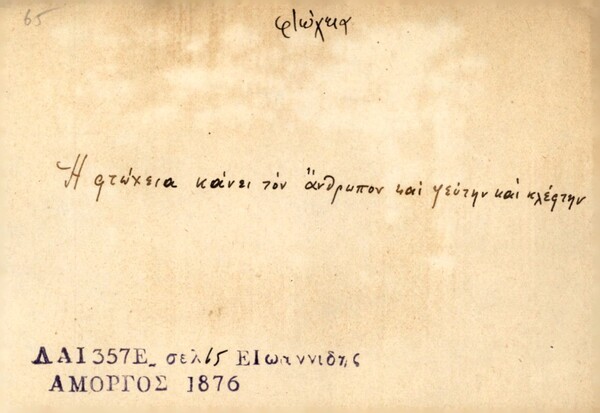 65
φτώχεια
Ἡ φτώχεια κάνει τὸν ἄνθρωπον καὶ ψεύτην καὶ κλέφτην
ΔΑΙ357Ε_ σελ 65 ΕΙωαννιδης
ΑΜΟΡΓΟΣ 1876